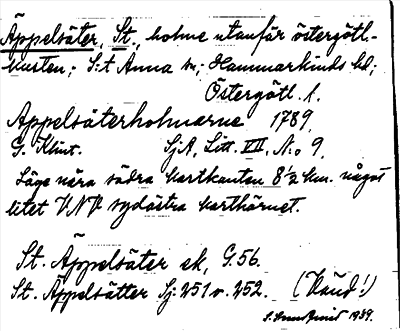 Äppelsäter, St., holme utanför östergötl.-
kusten; S:t Anna sn; Hammarkinds hd;
Östergötl. l.
Appelsäterholmarne 1789,
G. Klint. SjA, Litt. VII, N:o 9,
Läge nära södra kartkanten 8 1/2 km. något
litet VNV sydöstra karthörnet.
St. Äppelsäter ek, G.56.
St. Äppelsätter Sj: 251 o. 252. (Känd!)
1939.